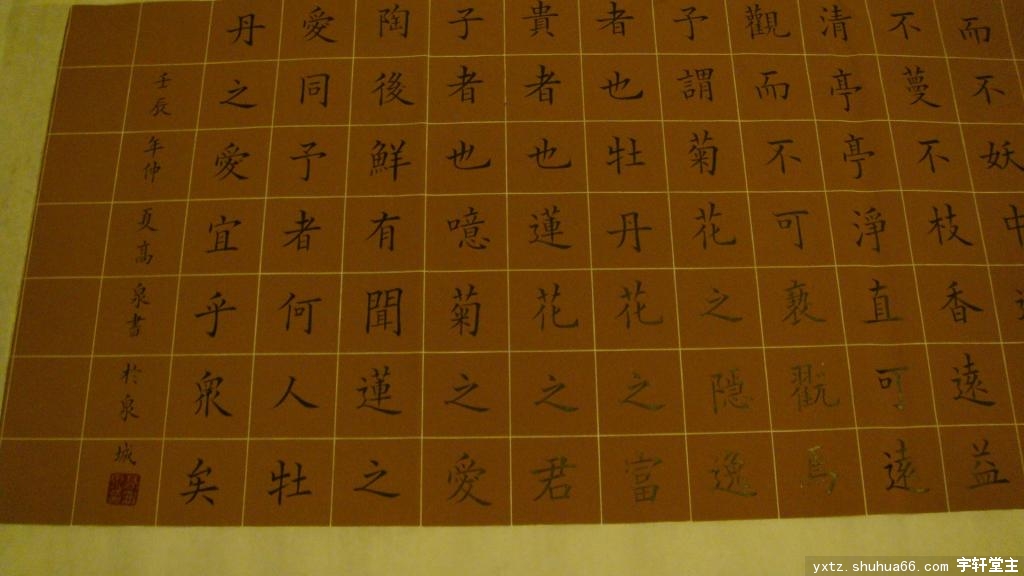 而不妖中
不蔓不枝香遠益
清亭亭淨直可遠
觀而不可褻翫焉
予謂菊花之隱逸
者也牡丹花之富
貴者也蓮花之君
子者也噫菊之愛
陶後鮮有聞蓮之
愛同予者何人牡
丹之愛宜乎眾矣
壬辰年仲夏高泉書於泉城
yxtz.shuhua66.com 宇轩堂主